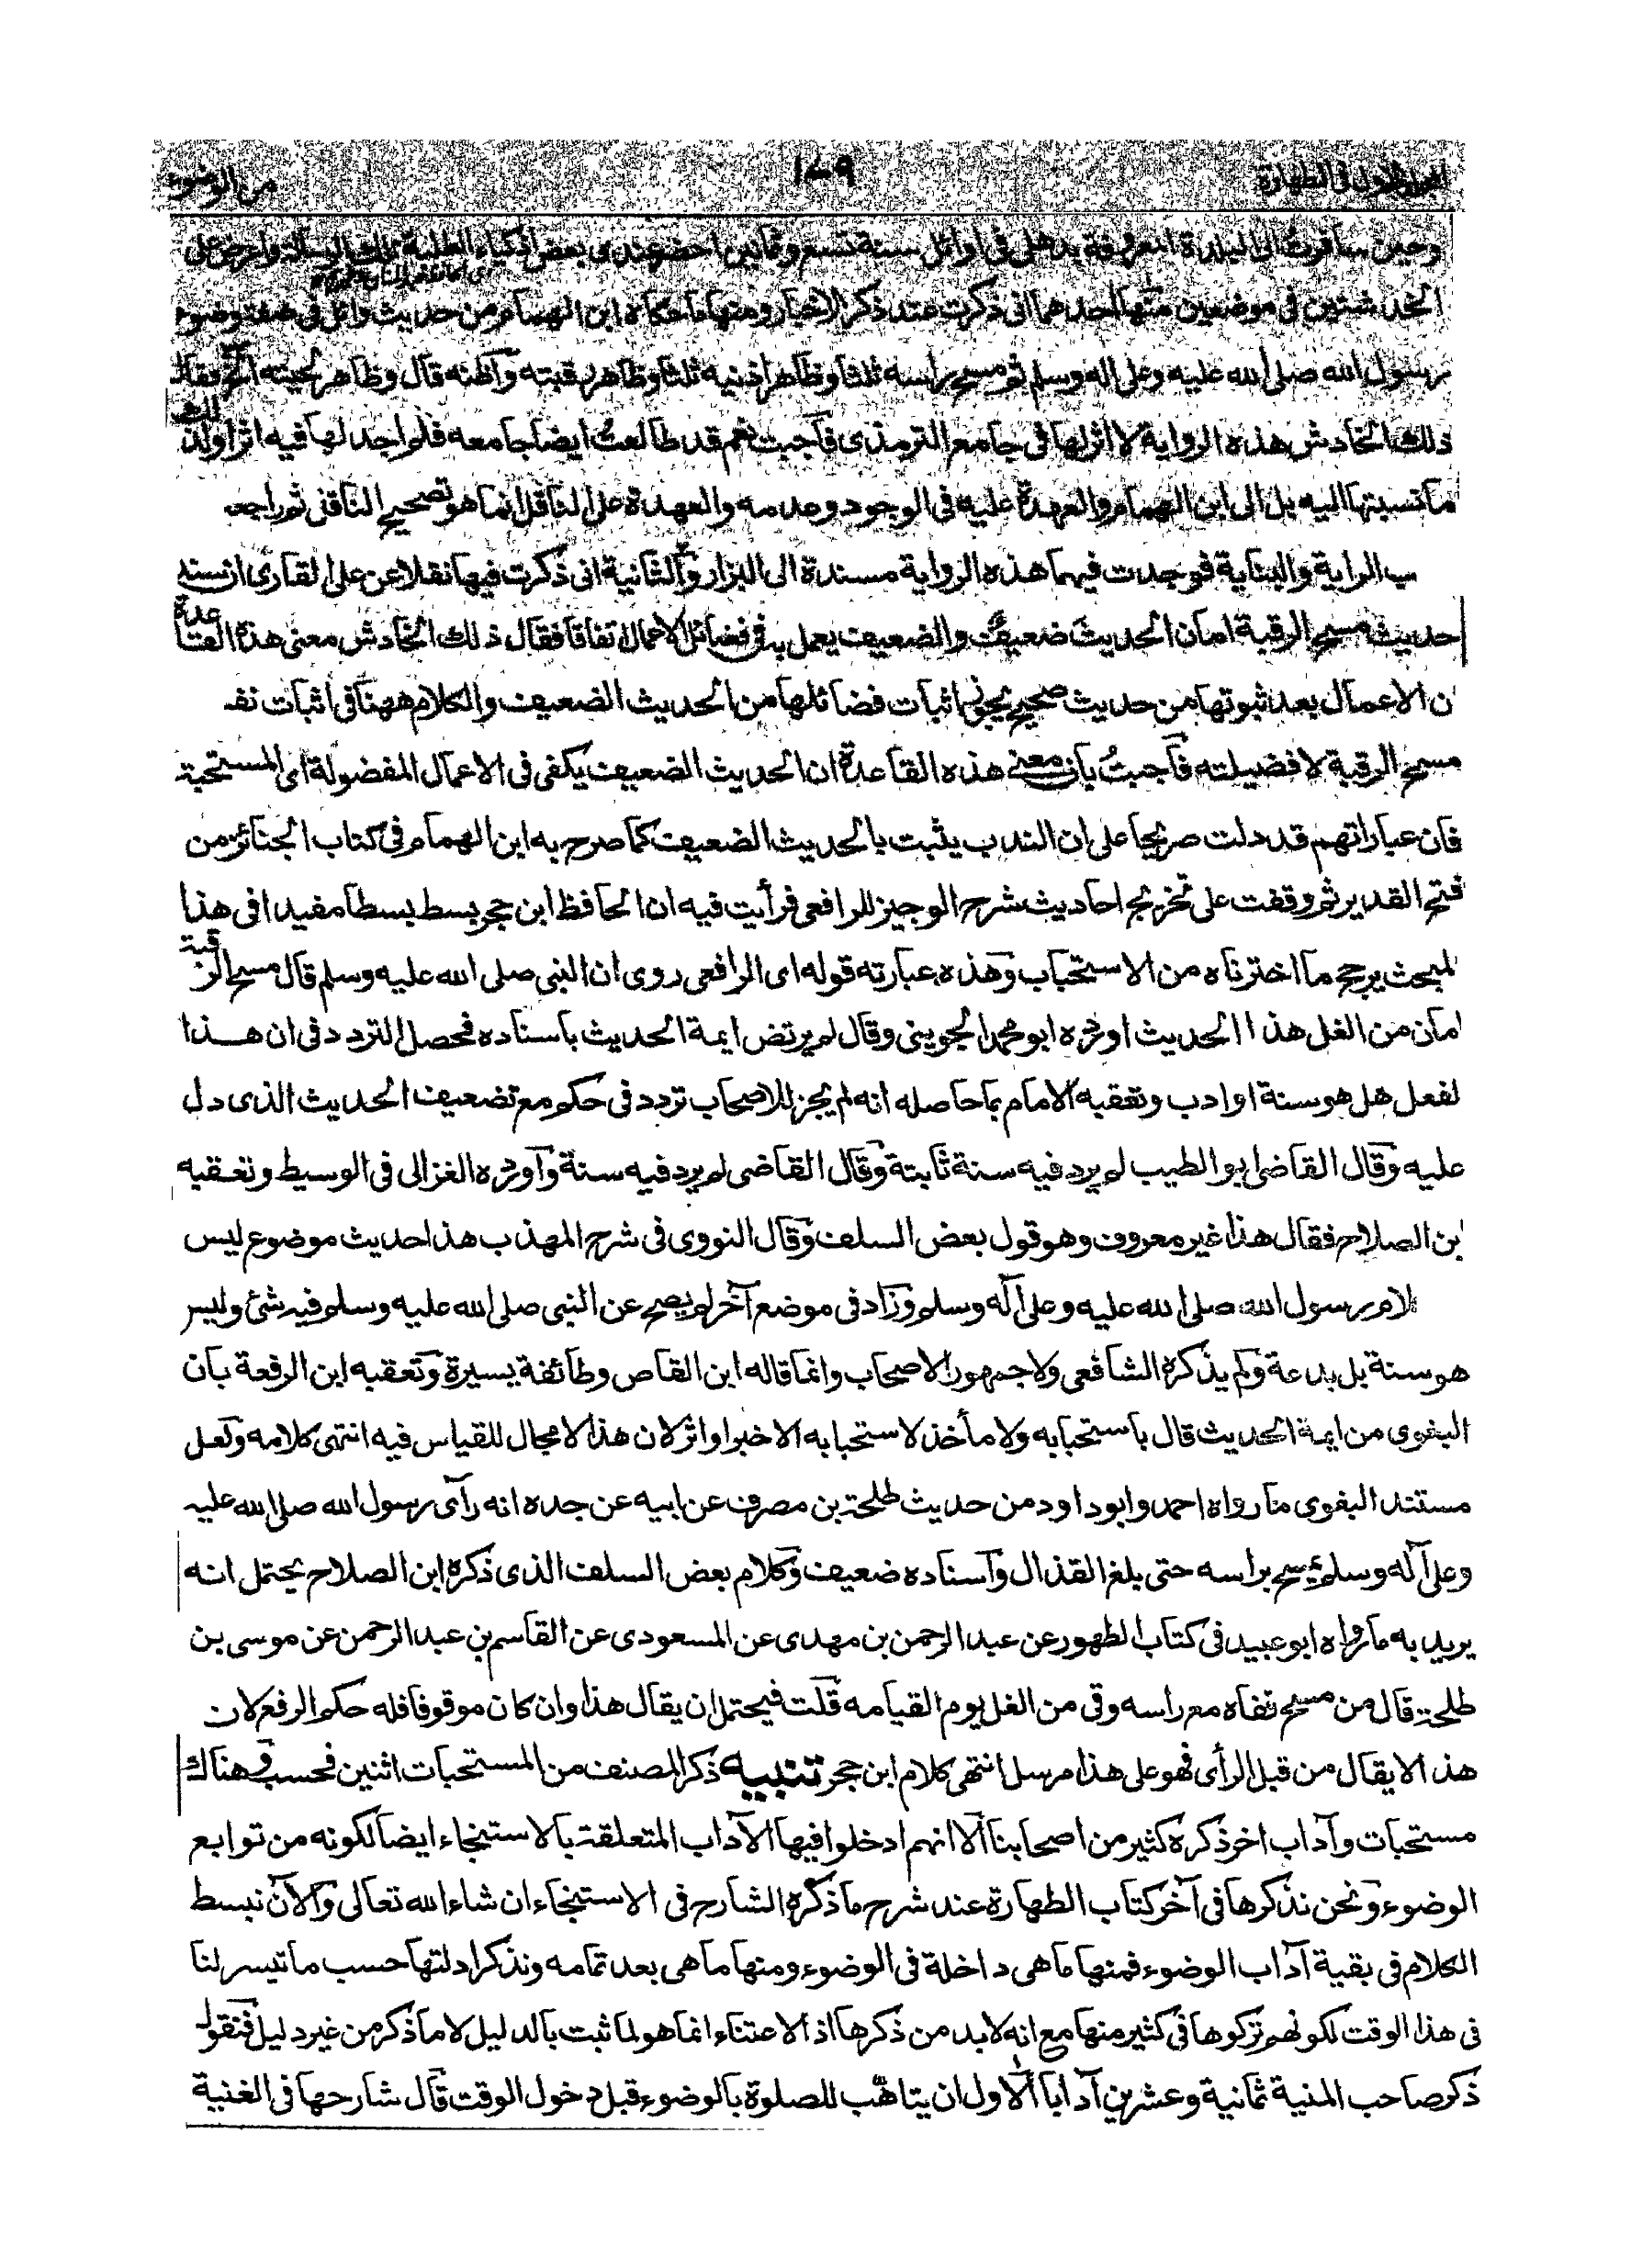 ١٧٩
من الوضوء
وحين سافرت الى البلدة المعروفة بدهلى فى اوائل سنة تسع وثمانين احضر عندى بعض اذكياء الطلبة تلك الرسالة واعرض على
الخدشتين فى موضعين منها احدهما انى ذكرت عند ذكر الاخبار ومنها ما حكاه ابن الهمام من حديث وائل فى صفة وضوء
رسول الله صلى الله عليه وعلى اله وسلم ثم مسح براسه ثلثا وظاهر اذنيه ثلثا وظاهر رقبته واظنه قال وظاهر لحيته الخ فقال
ذلك الخادش هذه الرواية لا اثر لها فى جامع الترمذى فاجبت نعم قد طالعت ايضا جامعه فلم اجد لها فيه اثرا ولذلك
ما نسبتها اليه بل الى ابن الهمام والعهدة عليه فى الوجود وعدمه والعهدة على الناقل انما هو تصحيح النقل ثم راجعت
ب الراية والبناية فوجدت فيهما هذه الرواية مسندة الى البزار والثانية انى ذكرت فيها نقلا عن على القارى ان سند
حديث مسح الرقبة امان الحديث ضعيف والضعيف يعمل به فى فضائل الاعمال اتفاقا فقال ذلك الخادش معنى هذه القاعدة
ن الاعمال بعد ثبوتها من حديث صحيح يجوز اثبات فضائلها من الحديث الضعيف والكلام ههنا فى اثبات نفـ
مسح الرقبة لا فضيلته فاجبت بان معنى هذه القاعدة ان الحديث الضعيف يكفى فى الاعمال المفضولة اى المستحبة
فان عباراتهم قد دلت صريحا على ان الندب يثبت بالحديث الضعيف كما صرح به ابن الهمام فى كتاب الجنائز من
فتح القدير ثم وقفت على تخريج احاديث شرح الوجيز للرافعى فرأيت فيه ان الحافظ ابن حجر بسط بسطا مفيدا فى هذا
لمبحث يرجح ما اخترناه من الاستحباب وهذه عبارته قوله اى الرافعى روى ان النبى صلى الله عليه وسلم قال مسح الرقبة
امان من الغل هذا الحديث اورده ابو محمد الجوينى وقال لم يرتض ايمة الحديث باسناده فحصل التردد فى ان هذا
لفعل هل هو سنة او ادب وتعقبه الامام بما حاصله انه لم يجز للاصحاب تردد فى حكم مع تضعيف الحديث الذى دل
عليه وقال القاضى ابو الطيب لم يرد فيه سنة ثابتة وقال القاضى لم يرد فيه سنة واورده الغزالى فى الوسيط وتعقبه
ابن الصلاح فقال هذا غير معروف وهو قول بعض السلف وقال النووى فى شرح المهذب هذا حديث موضوع ليس
لام رسول الله صلى الله عليه وعلى آله وسلم وزاد فى موضع آخر لم يصح عن النبى صلى الله عليه وسلم فيه شئ وليس
هو سنة بل بدعة ولم يذكره الشافعى ولا جمهور الاصحاب وانما قاله ابن القاص وطائفة يسيرة وتعقبه ابن الرفعة بان
البغوى من ايمة الحديث قال باستحبابه ولا مأخذ لاستحبابه الا خبرا واثر لان هذا لا مجال للقياس فيه انتهى كلامه ولعل
مستند البغوى ما رواه احمد وابو داود من حديث طلحة بن مصرف عن ابيه عن جده انه رآى رسول الله صلى الله عليه
وعلى آله وسلم يمسح براسه حتى بلغ القذال واسناده ضعيف وكلام بعض السلف الذى ذكره ابن الصلاح يحتمل انه
يريد به ما رواه ابو عبيد فى كتاب الطهور عن عبد الرحمن بن مهدى عن المسعودى عن القاسم بن عبد الرحمن عن موسى بن
طلحة قال من مسح قفاه مع راسه وقى من الغل يوم القيامه قلت فيحتمل ان يقال هذا وان كان موقوفا فله حكم الرفع لان
هذا لا يقال من قبل الرأى فهو على هذا مرسل انتهى كلام ابن حجر تنبيه ذكر المصنف من المستحبات اثنين فحسب وهناك
مستحبات وآداب اخر ذكره كثير من اصحابنا الا انهم ادخلوا فيها الآداب المتعلقة بالاستنجاء ايضا لكونه من توابع
الوضوء ونحن نذكرها فى آخر كتاب الطهارة عند شرح ما ذكره الشارح فى الاستنجاء ان شاء الله تعالى والآن نبسط
الكلام فى بقية آداب الوضوء فمنها ما هى داخلة فى الوضوء ومنها ما هى بعد تمامه ونذكر ادلتها حسب ما تيسر لنا
فى هذا الوقت لكونهم تركوها فى كثير منها مع انه لا بد من ذكرها اذ الاعتناء انما هو لما ثبت بالدليل لا ما ذكر من غير دليل فنقول
ذكر صاحب المنية ثمانية وعشرين آدابا الاول ان يتاهب للصلوة بالوضوء قبل دخول الوقت قال شارحها فى الغنية